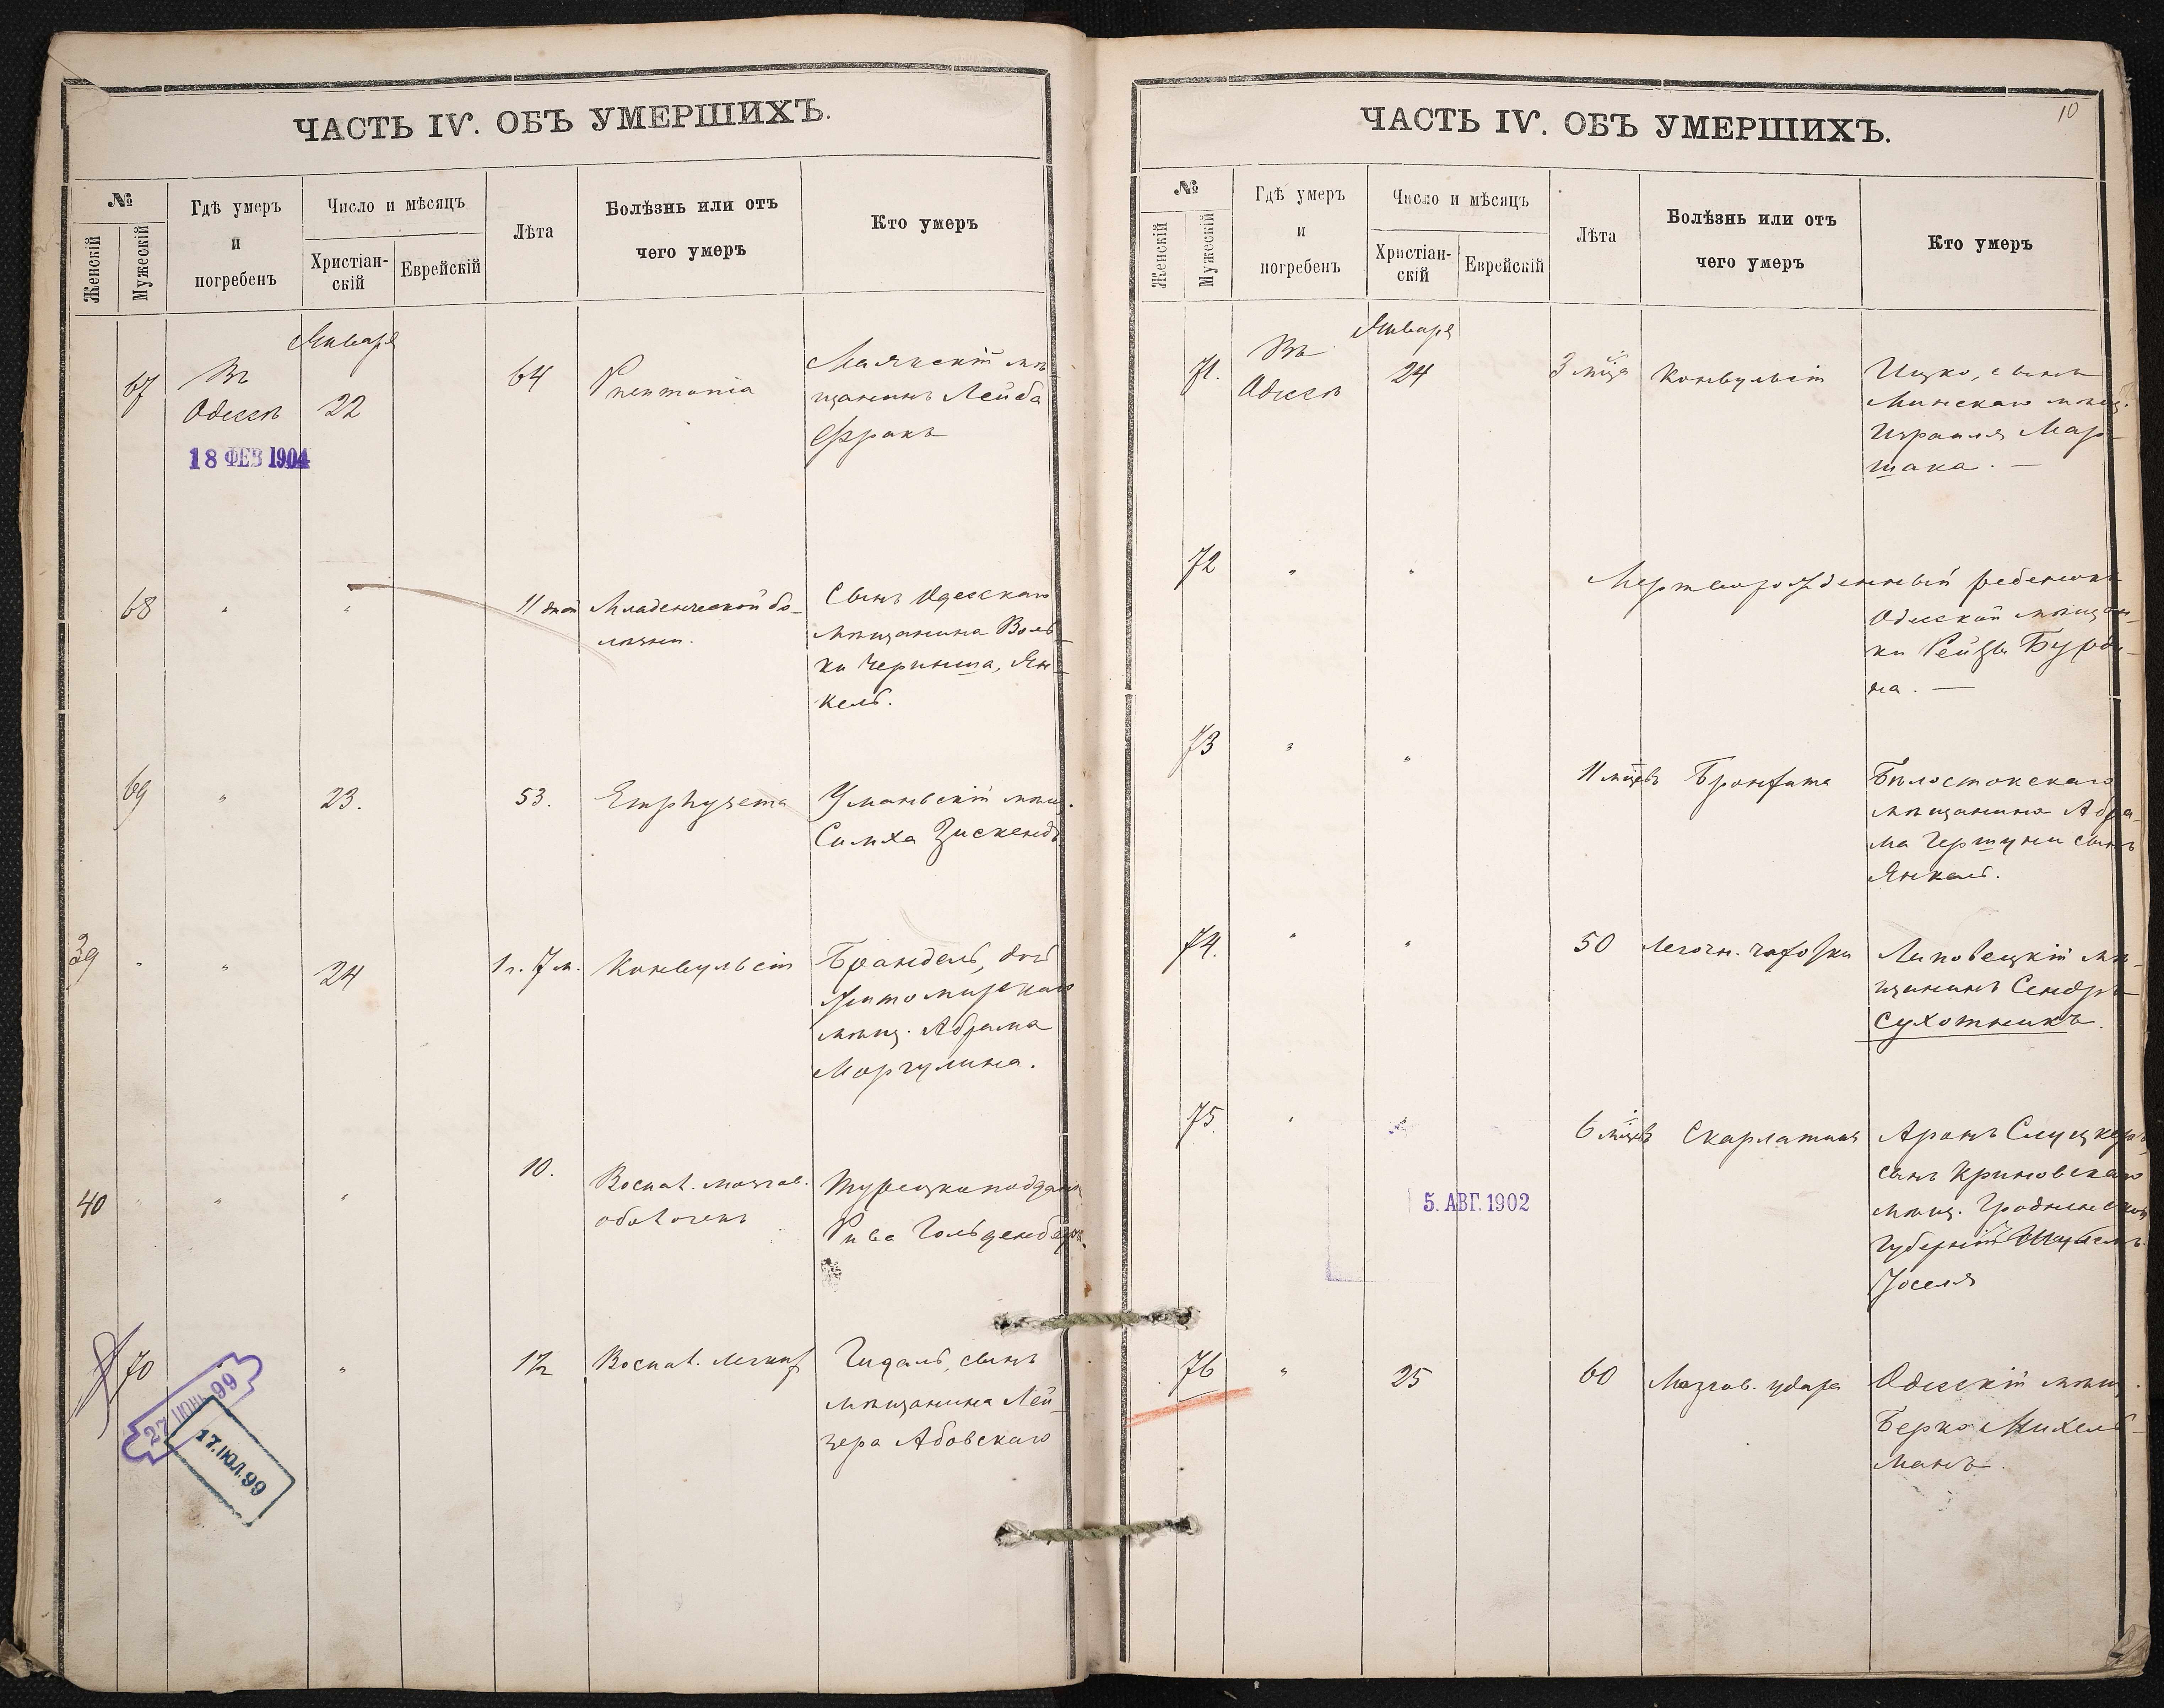 ЧАСТЬ IV. ОБЪ УМЕРШИХЪ.
№
Женскій
Мужескій
Гдѣ умеръ
и
погребенъ
Число и мѣсяцъ
Христіан-
скій
Еврейскій
Лѣта
Болѣзнь или отъ
чего умеръ
Кто умеръ
Января
67
Въ
Одессѣ
22
64
Pneumonia
Маякскій мѣ-
щанинъ Лейба
Франкъ
18 ФЕВ 1904
68
"
"
11 дней
Младенческой бо-
лѣзни.
Сынъ Одесскаго
мѣщанина Воль-
ки Черниша, Ян-
кель.
69
"
23.
53.
Emphysema
Уманьскій мѣщ.
Симха Зискендъ
39
"
"
24
1 г. 7 м.
Конвульсіи
Брандель, дочь
Житомирскаго
мѣщ. Абрама
Моргулина.
40
"
"
"
10.
Воспал. мозгов.
оболочекъ
Турецкоподдан.
Рива Гольденберг.
70
"
1½
Воспал. легких
сынъ
мѣщанина Лей-
зера Абовскаго
27 ИЮНЬ 99
17. ІЮЛ. 99
ЧАСТЬ IV. ОБЪ УМЕРШИХЪ.
10
№
Женскій
Мужескій
Гдѣ умеръ
и
погребенъ
Число и мѣсяцъ
Христіан-
скій
Еврейскій
Лѣта
Болѣзнь или отъ
чего умеръ
Кто умеръ
Января
71.
Въ
Одессѣ
24
3 мѣс
Конвульсіи
Ицко, сынъ
Минскаго мѣщ.
Израиля Мар-
шака. —
72
"
"
Мертворожденный ребенокъ
Одесской мѣщан-
ки Рейзы
на. —
73
"
"
11 мѣсцевъ
Бронхита
Бѣлостокскаго
мѣщанина Абра-
ма Гершуни сынъ
Янкель.
74.
"
"
50
Легочн. чахотки
Липовецкій мѣ-
щанинъ Сендеръ
Сухотникъ.
75.
"
"
6 мѣсцевъ
Скарлатина
Аронъ Слуцкеръ,
сынъ Криновскаго
мѣщ. Гродненской
губерніи
Іоселя
5. АВГ. 1902
76
"
25
60
Мозгов. удара
Одесскій мѣщ.
Берко Михель-
манъ.